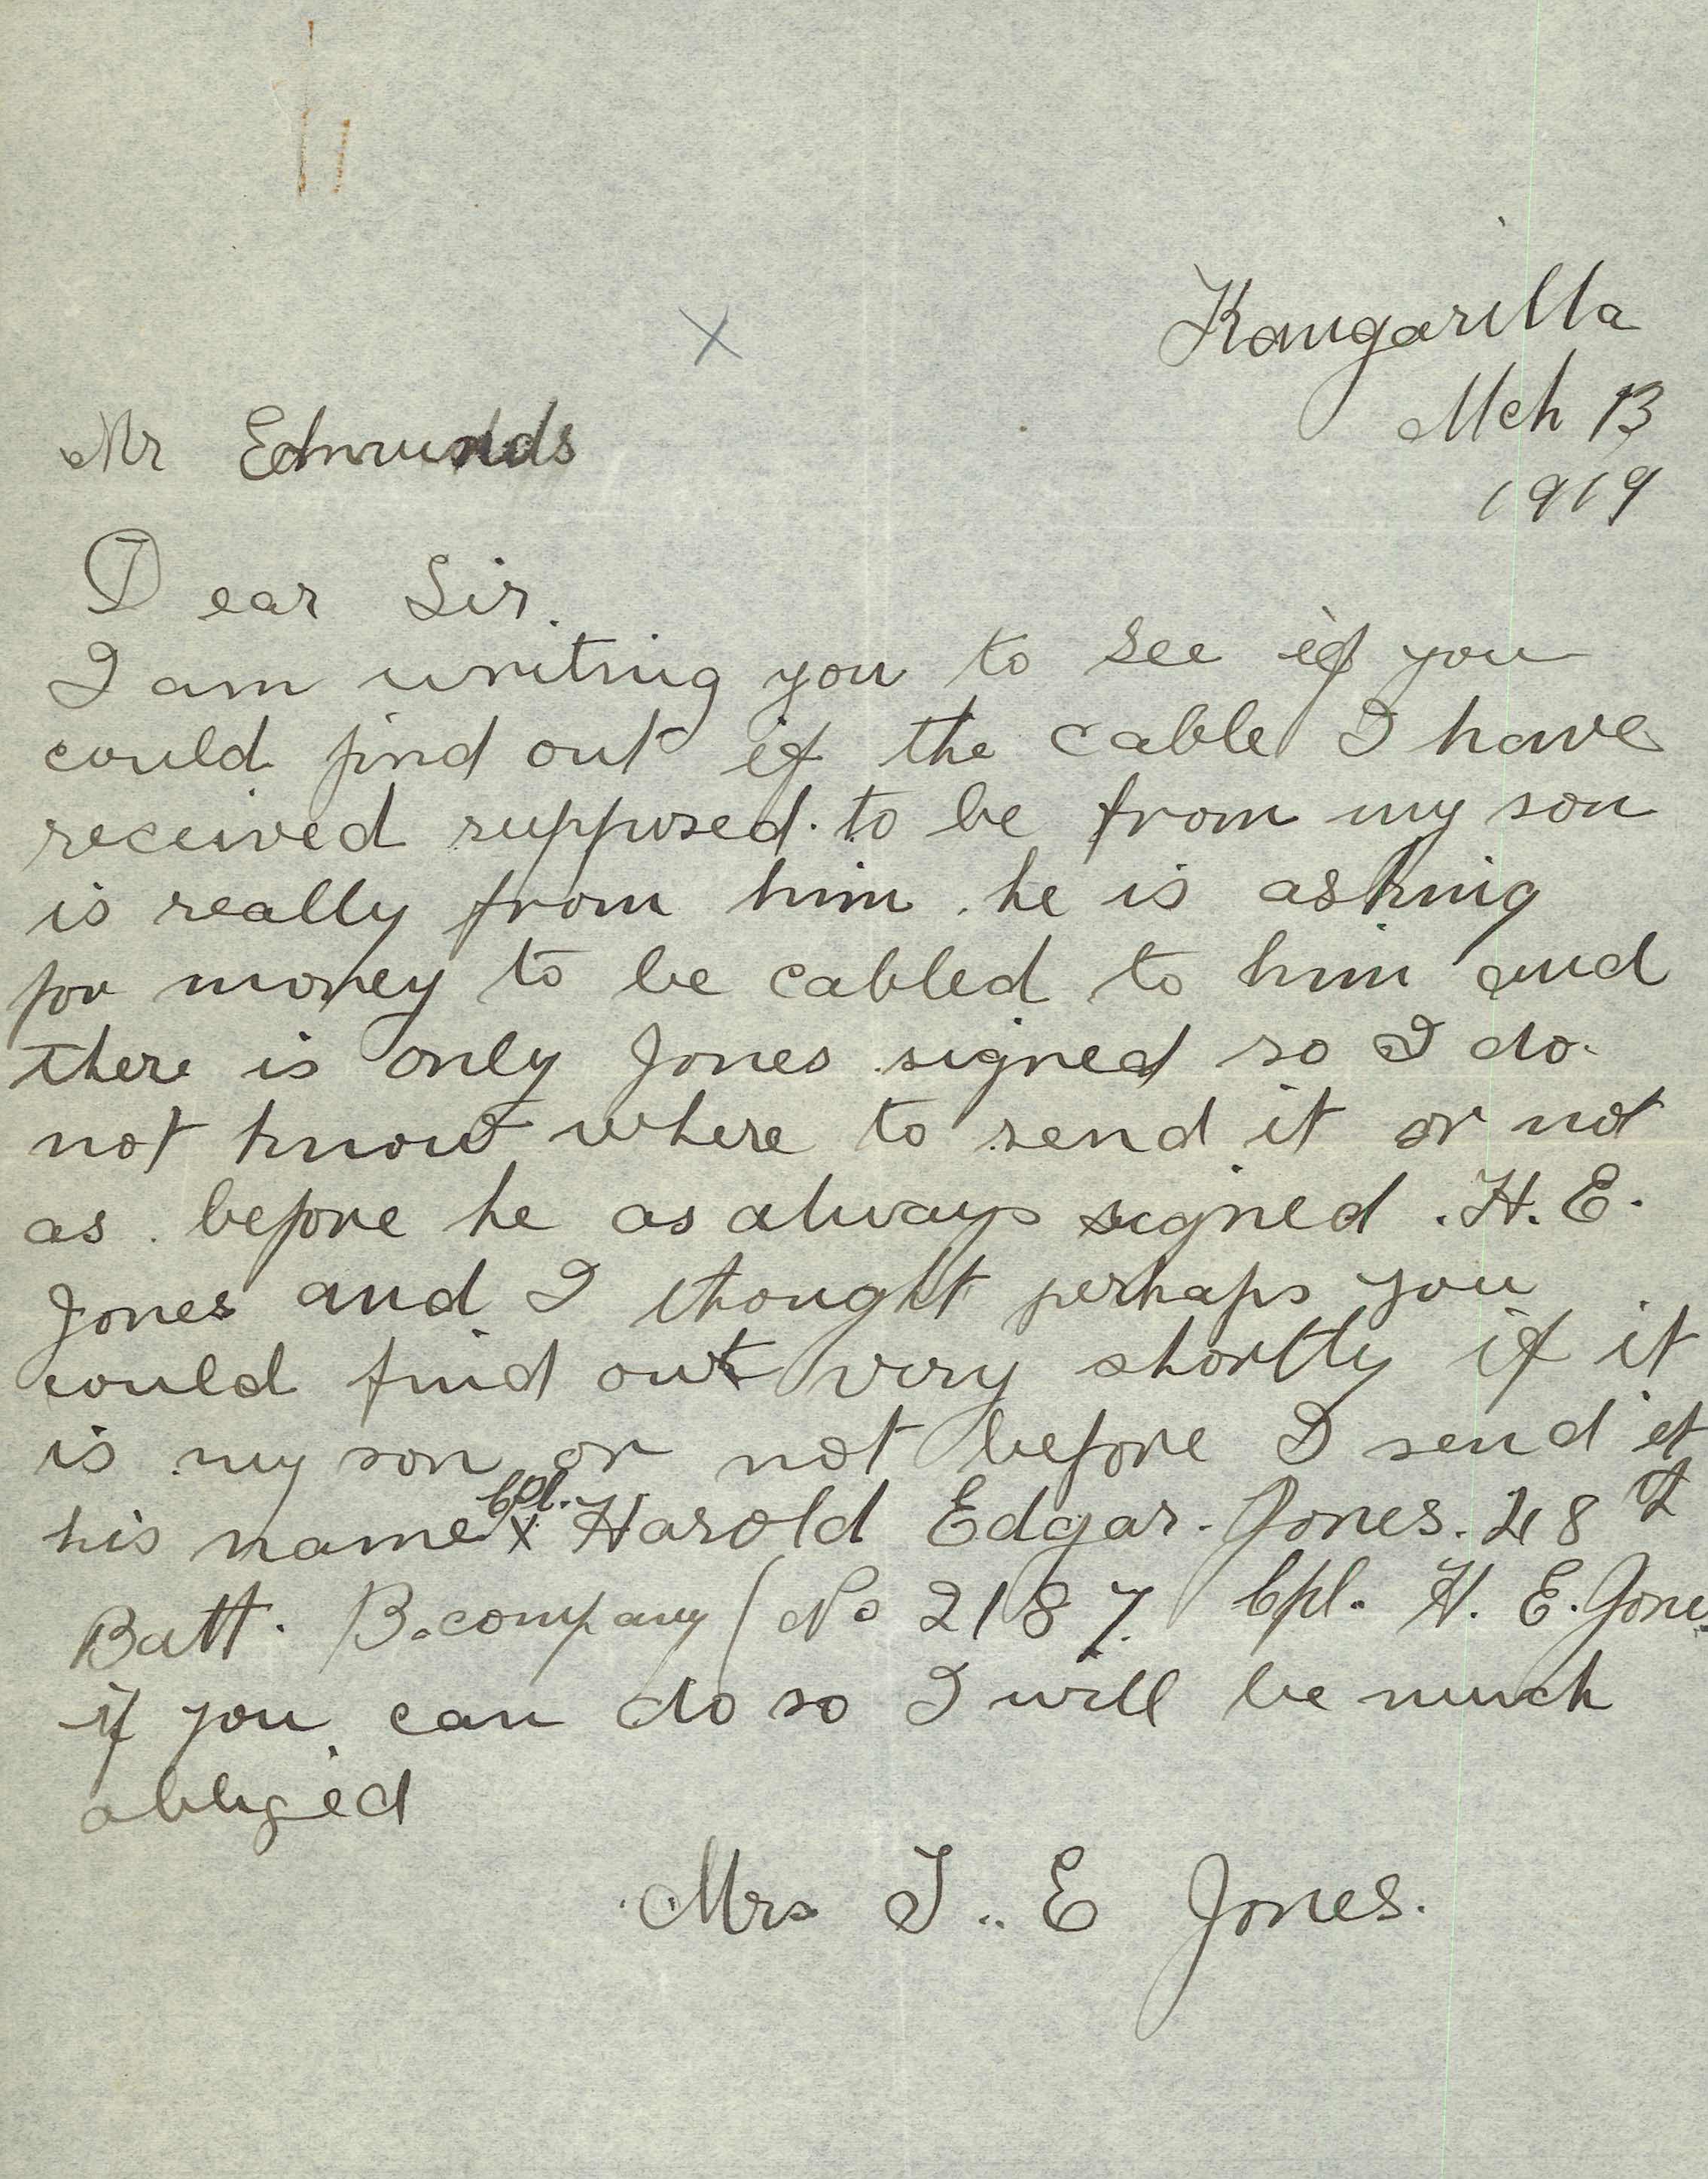 Kangarilla
Mch 13
1919
Mr Edmunds
Dear Sir.
I am writing you to see if you
could find out if the cable I have
received supposed to be from my son
is really from him. he is asking
for money to be cabled to him and
there is only Jones signed so I do
not know where to send it or not
as before he as always signed .H.E.
Jones and I thought perhaps you
could find out very shortly if it
is my son or not before I send it
his name x Cpl. Harold Edgar. Jones. 48th
Batt. B.company / No 2187. Cpl. H. E. Jones.
if you can do so I will be much
obliged
Mrs J.. E Jones.